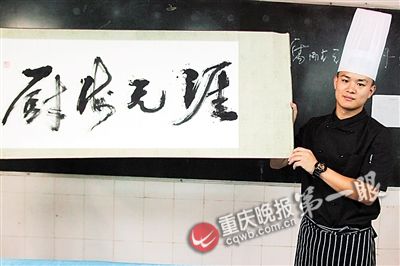 厨海无涯
重庆晚报
第一眼
cqwb.com.cn